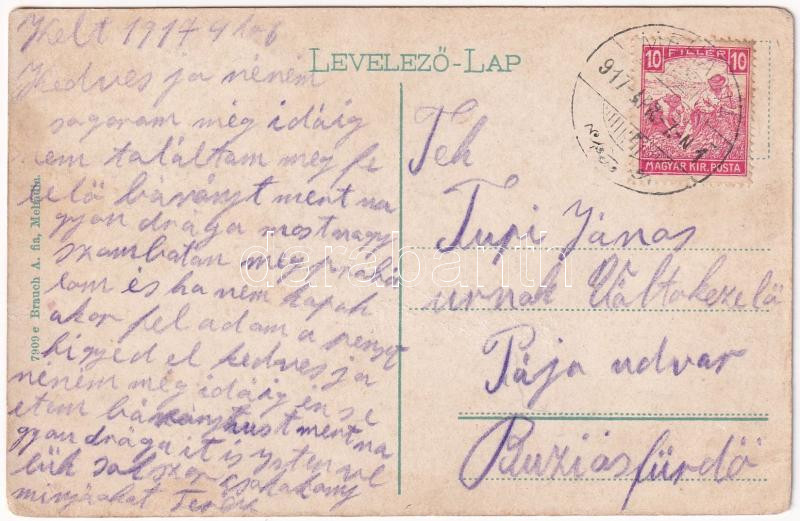 Kelt 1917 4 hó 6
LEVELEZŐ-LAP
Kedves ja néném
sogorom még idáig
nem találtam megfe
lelő bárányt mert na
gyon drága most nagy
szombatan meg probá
lom és ha nem kapok
akor fel adom a penzt
higyed el kedves ja
néném még idáig én se
etem bárányhust mert na
gyon drága it is Isten vel
ük sokszor csokolony
minjáokat Teréz
7909 e Brauch A. fia, Mehádia.
FILLÉR
10 10
MAGYAR KIR. POSTA
917
Tek
Tupi János
urnak Váltokezelö
Pája udvar
Buziásfürdö
darabanth